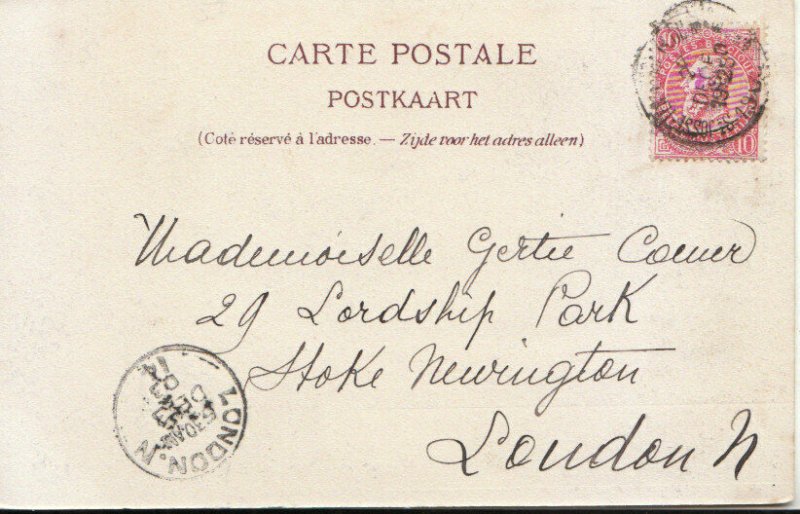 CARTE POSTALE
POSTKAART
(Coté réservé à l'adresse. — Zijde voor het adres alleen)
10
Mademoiselle Gertie Comer
29 Lordship Park
Stoke Newington
London N
LONDON. N.